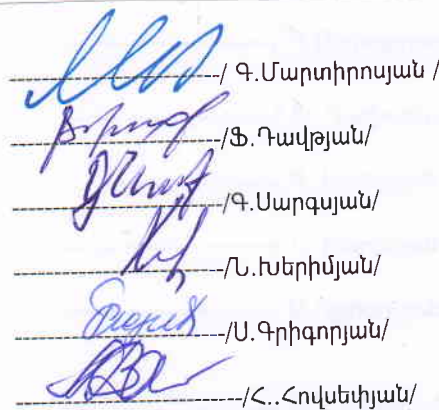 --------------------/ Գ.Մարտիրոսյան /
--------------------/Ֆ.Դավթյան/
--------------------/Գ.Սարգսյան/
--------------------/Ն.Խերիմյան/
--------------------/Ս.Գրիգորյան/
--------------------/Հ..Հովսեփյան/